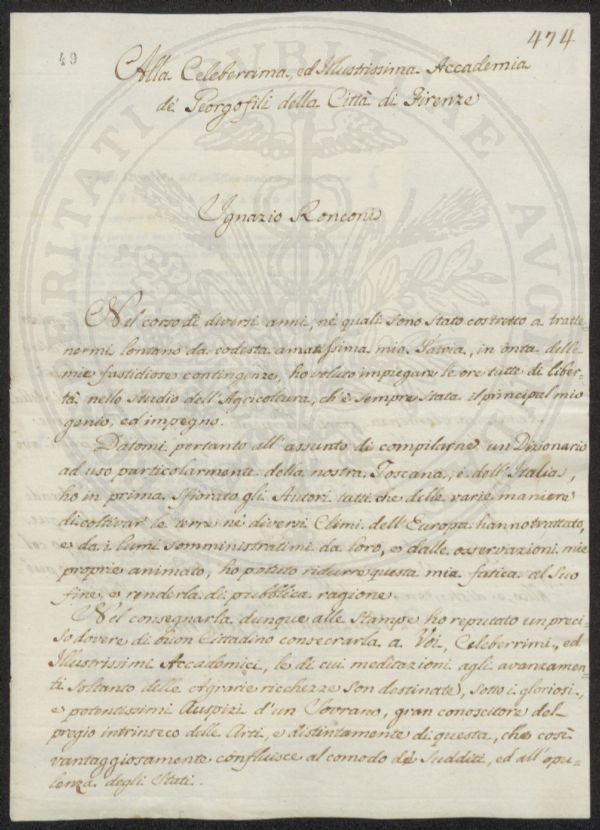 474
49
Alla Celeberrima, ed Illustrissima Accademia
de' Georgofili della Città di Firenze
Ignazio Ronconi
Nel corso di diversi anni, ne' quali sono stato costretto a tratte-
nermi lontano da codesta amatissima mia Patria, in onta delle
mie fastidiose contingenze, ho voluto impiegare le ore tutte di liber-
tà nello studio dell'Agricoltura, ch'è sempre stata il principal mio
genio, ed impegno.
Datomi pertanto all'assunto di compilarne un Dizionario
ad uso particolarmente della nostra Toscana, e dell'Italia,
ho in prima sfiorato gli Autori tutti che delle varie maniere
di coltivar le terre ne' diversi Climi dell'Europa hanno trattato,
e da i lumi somministratimi da loro, e dalle osservazioni mie
proprie animato, ho potuto ridurre questa mia fatica al suo
fine, e renderla di pubblica ragione.
Nel consegnarla dunque alle Stampe ho reputato un preci-
so dovere di buon Cittadino consecrarla a Voi, Celeberrimi, ed
Illustrissimi Accademici, le di cui meditazioni agli avanzamen-
ti soltanto delle Agrarie ricchezze son destinate, sotto i gloriosi,
e potentissimi Auspizi d'un Sovrano, gran conoscitore del
pregio intrinseco delle Arti, e distintamente di questa, che così
vantaggiosamente confluisce al comodo de' Sudditi, ed all'opu-
lenza degli Stati.